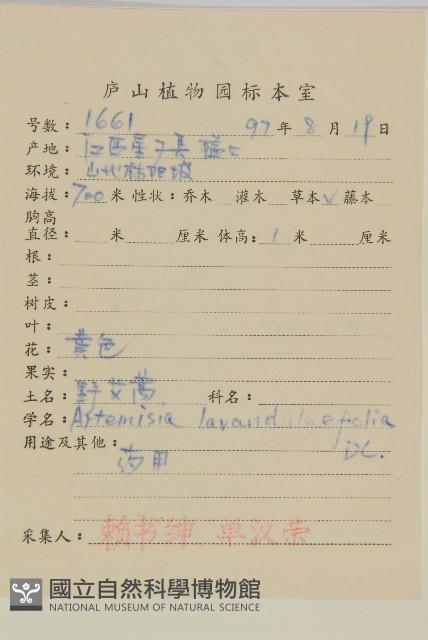 庐山植物园标本室
号数：1661 97年8月19日
产地：江西星子县
环境：山北林阳坡
海拔：700米 性状：乔木 灌木 草本√ 藤本
胸高
直径： 米 厘米 体高：1 米 厘米
根：
茎：
树皮：
叶：
花：黄色
果实：
土名：野艾蒿 科名：
学名：Artemisia lavandulaefolia
DC.
用途及其他：
药用
采集人：赖书绅 单汉荣
國立自然科學博物館
NATIONAL MUSEUM OF NATURAL SCIENCE